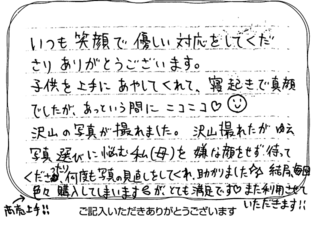 いつも笑顔で優しい対応をしてくだ
さりありがとうございます。
子供を上手にあやしてくれて、寝起きで真顔
でしたが、あっという間にニコニコ♡
沢山の写真が撮れました。沢山撮れたがゆえ
写真選びに悩む私(母)を嫌な顔をせず待って
くださったり、何度も写真の見直しをしてくれ、助かりました 結局、毎回
色々購入してしまいますが、とても満足です♡また利用させて
いただきます!!
商売上手!!
ご記入いただきありがとうございます